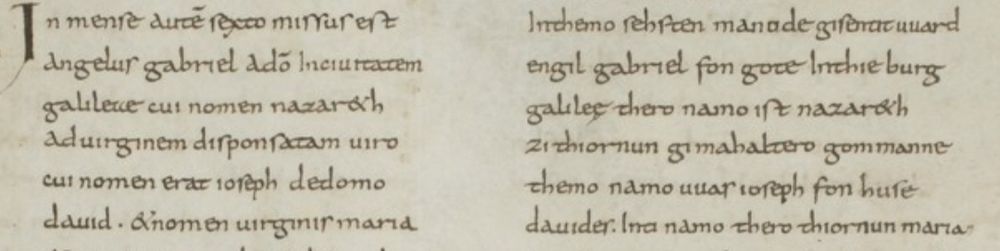 In mense autē sexto missus est
angelus gabriel a dō In ciuitatem
galileae cui nomen nazar&h
ad uirginem disponsatam uiro
cui nomen erat ioseph de domo
dauid. & nomen uirginis maria
In themo sehsten manode gisentit uuard
engil gabriel fon gote In thie burg
galilee thero namo ist nazar&h
zi thiornun gimahaltero gommanne
themo namo uuas ioseph fon huse
dauides. Inti namo thero thiornun maria